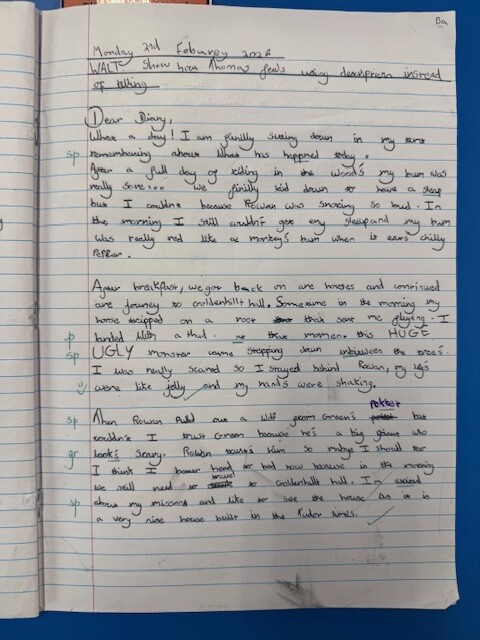 Ba
Monday 2nd Feburey 2026
WALT Show how Thomas feels using description instead
of telling
Dear Diary,
What a day! I am finilly sitting down in my tent
sp remembering about what has happned today.
After a full day of riding in the woods my bum was
really sore... we finilly laid down to have a sleep
but I couldn't because Rowan was snoring so loud. In
the morning I still couldn't get eny sleep and my bum
was really red like a monkey's bum when it eats chilly
pepper.
After breakfast, we got back on are horses and continued
are journey to Goldenhill hall. Sometime in the morning my
horse tripped on a root that sent me flying. I
p landed with a thud. at that moment this HUGE
sp UGLY monster came stepping down inbetween the trees.
I was really scared so I stayed behind Rowan, my legs
were like jelly and my hands were shaking.
pocket
sp Then Rowan out a from Green's but
couldn't I trust Green because he's a big giant who
gr look's scary. Rowan trust's him so maby I should too
I think I have to had now because in the morning
travel
we still need to to Goldenhill hall. I'm
sp about my and like to see the house as it is
a very nice house built in the Tudor times.